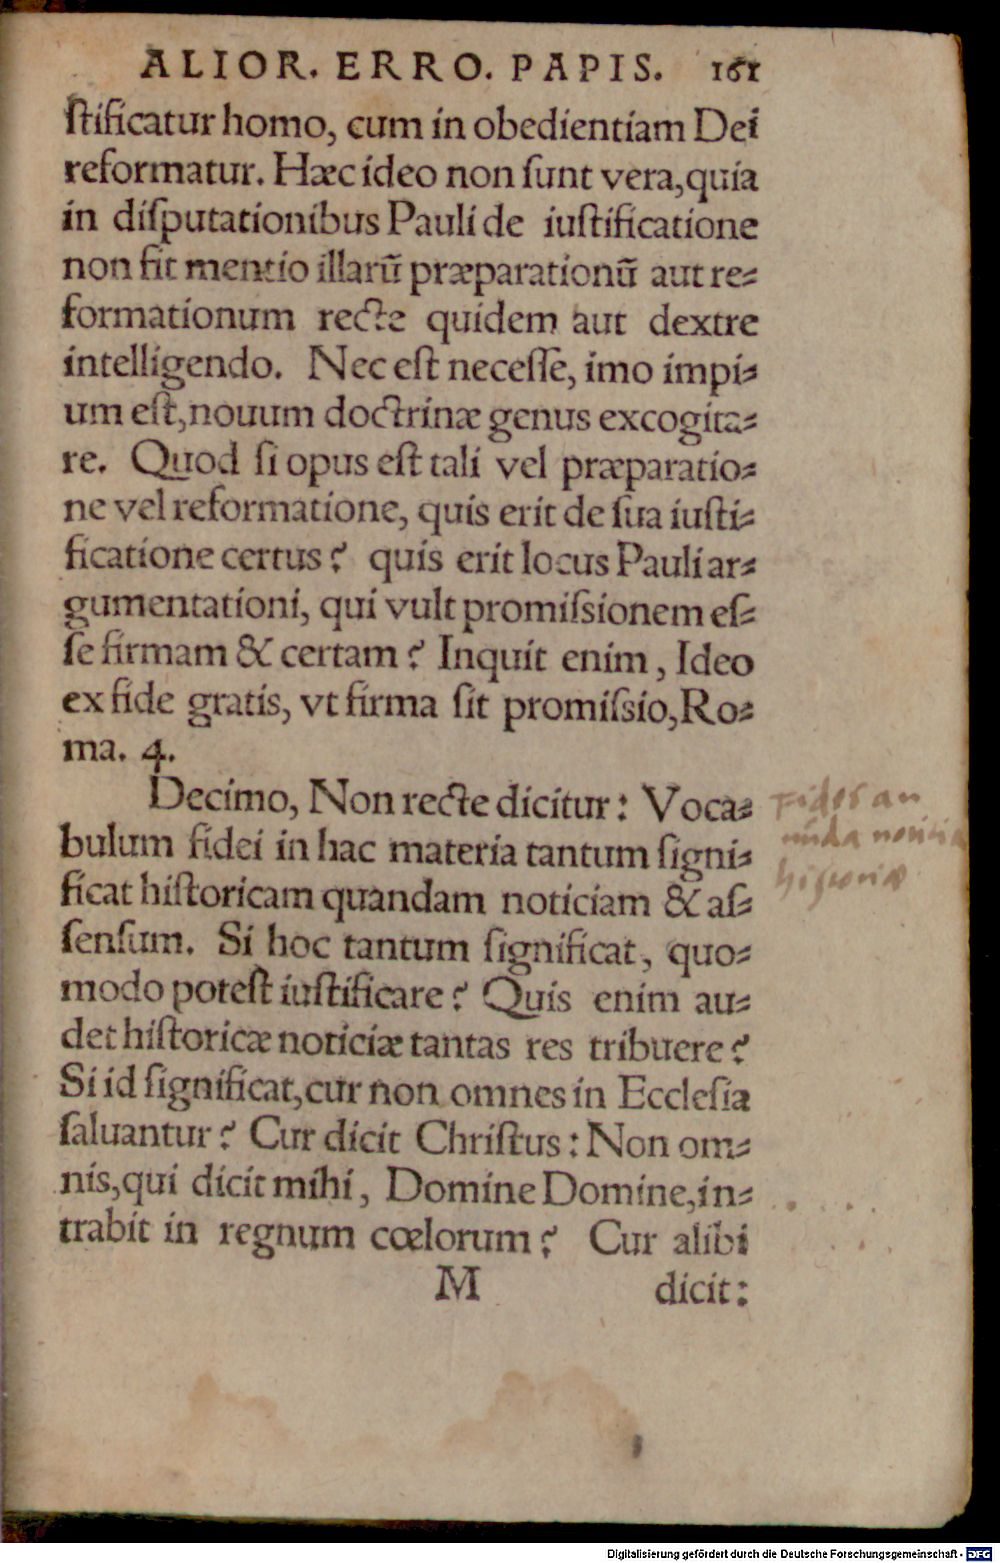 ALIOR. ERRO. PAPIS. 161
ſtificatur homo, cum in obedientiam Dei
reformatur. Hæc ideo non ſunt vera, quia
in diſputationibus Pauli de iuſtificatione
non fit mentio illarũ præparationũ aut re-
formationum recte quidem aut dextre
intelligendo. Nec eſt neceſſe, imo impi-
um eſt, nouum doctrinæ genus excogita-
re. Quod ſi opus eſt tali vel præparatio-
ne vel reformatione, quis erit de ſua iuſti-
ficatione certus? quis erit locus Pauli ar-
gumentationi, qui vult promiſsionem eſ-
ſe firmam & certam? Inquit enim, Ideo
ex fide gratis, vt firma ſit promiſsio, Ro-
ma. 4.
Decimo, Non recte dicitur: Voca-
bulum fidei in hac materia tantum ſigni-
ficat hiſtoricam quandam noticiam & aſ-
ſenſum. Si hoc tantum ſignificat, quo-
modo poteſt iuſtificare? Quis enim au-
det hiſtoricæ noticiæ tantas res tribuere?
Si id ſignificat, cur non omnes in Eccleſia
ſaluantur? Cur dicit Chriſtus: Non om-
nis, qui dicit mihi, Domine Domine, in-
trabit in regnum cœlorum? Cur alibi
M dicit:
Fides an
nuda noticia
historiæ
Digitalisierung gefördert durch die Deutsche Forschungsgemeinschaft - DFG